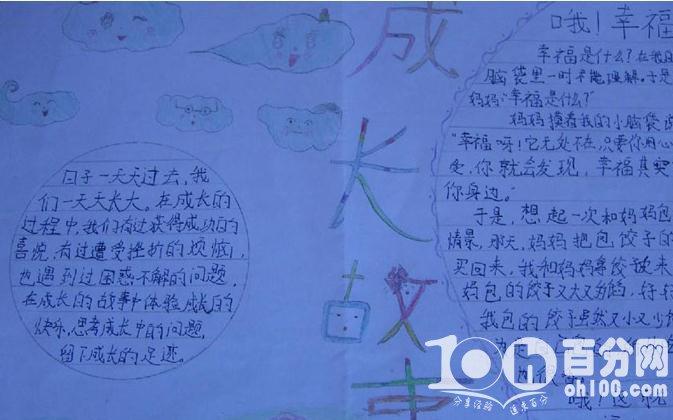 成
长
故
事
日子一天天过去,我
们一天天长大。在成长的
过程中,我们有过获得成功的
喜悦,有过遭受挫折的烦恼,
也遇到过困惑不解的问题,
在成长的故事中体验成长的
快乐,思考成长中的问题,
留下成长的足迹。
哦!幸福
幸福是什么?在我
脑袋里一时不能理解。于是
妈妈“幸福是什么?”
妈妈摸着我的小脑袋说
“幸福呀!它无处不在,只要你用心
受,你就会发现,幸福其实
你身边。”
于是,想起一次和妈妈包
情景,那天,妈妈把包饺子的
买回来,我和妈妈
妈包的饺子又大又
我包的饺子虽然又小又
哦!
100百分网
oh100.com
分享经验 追求百分